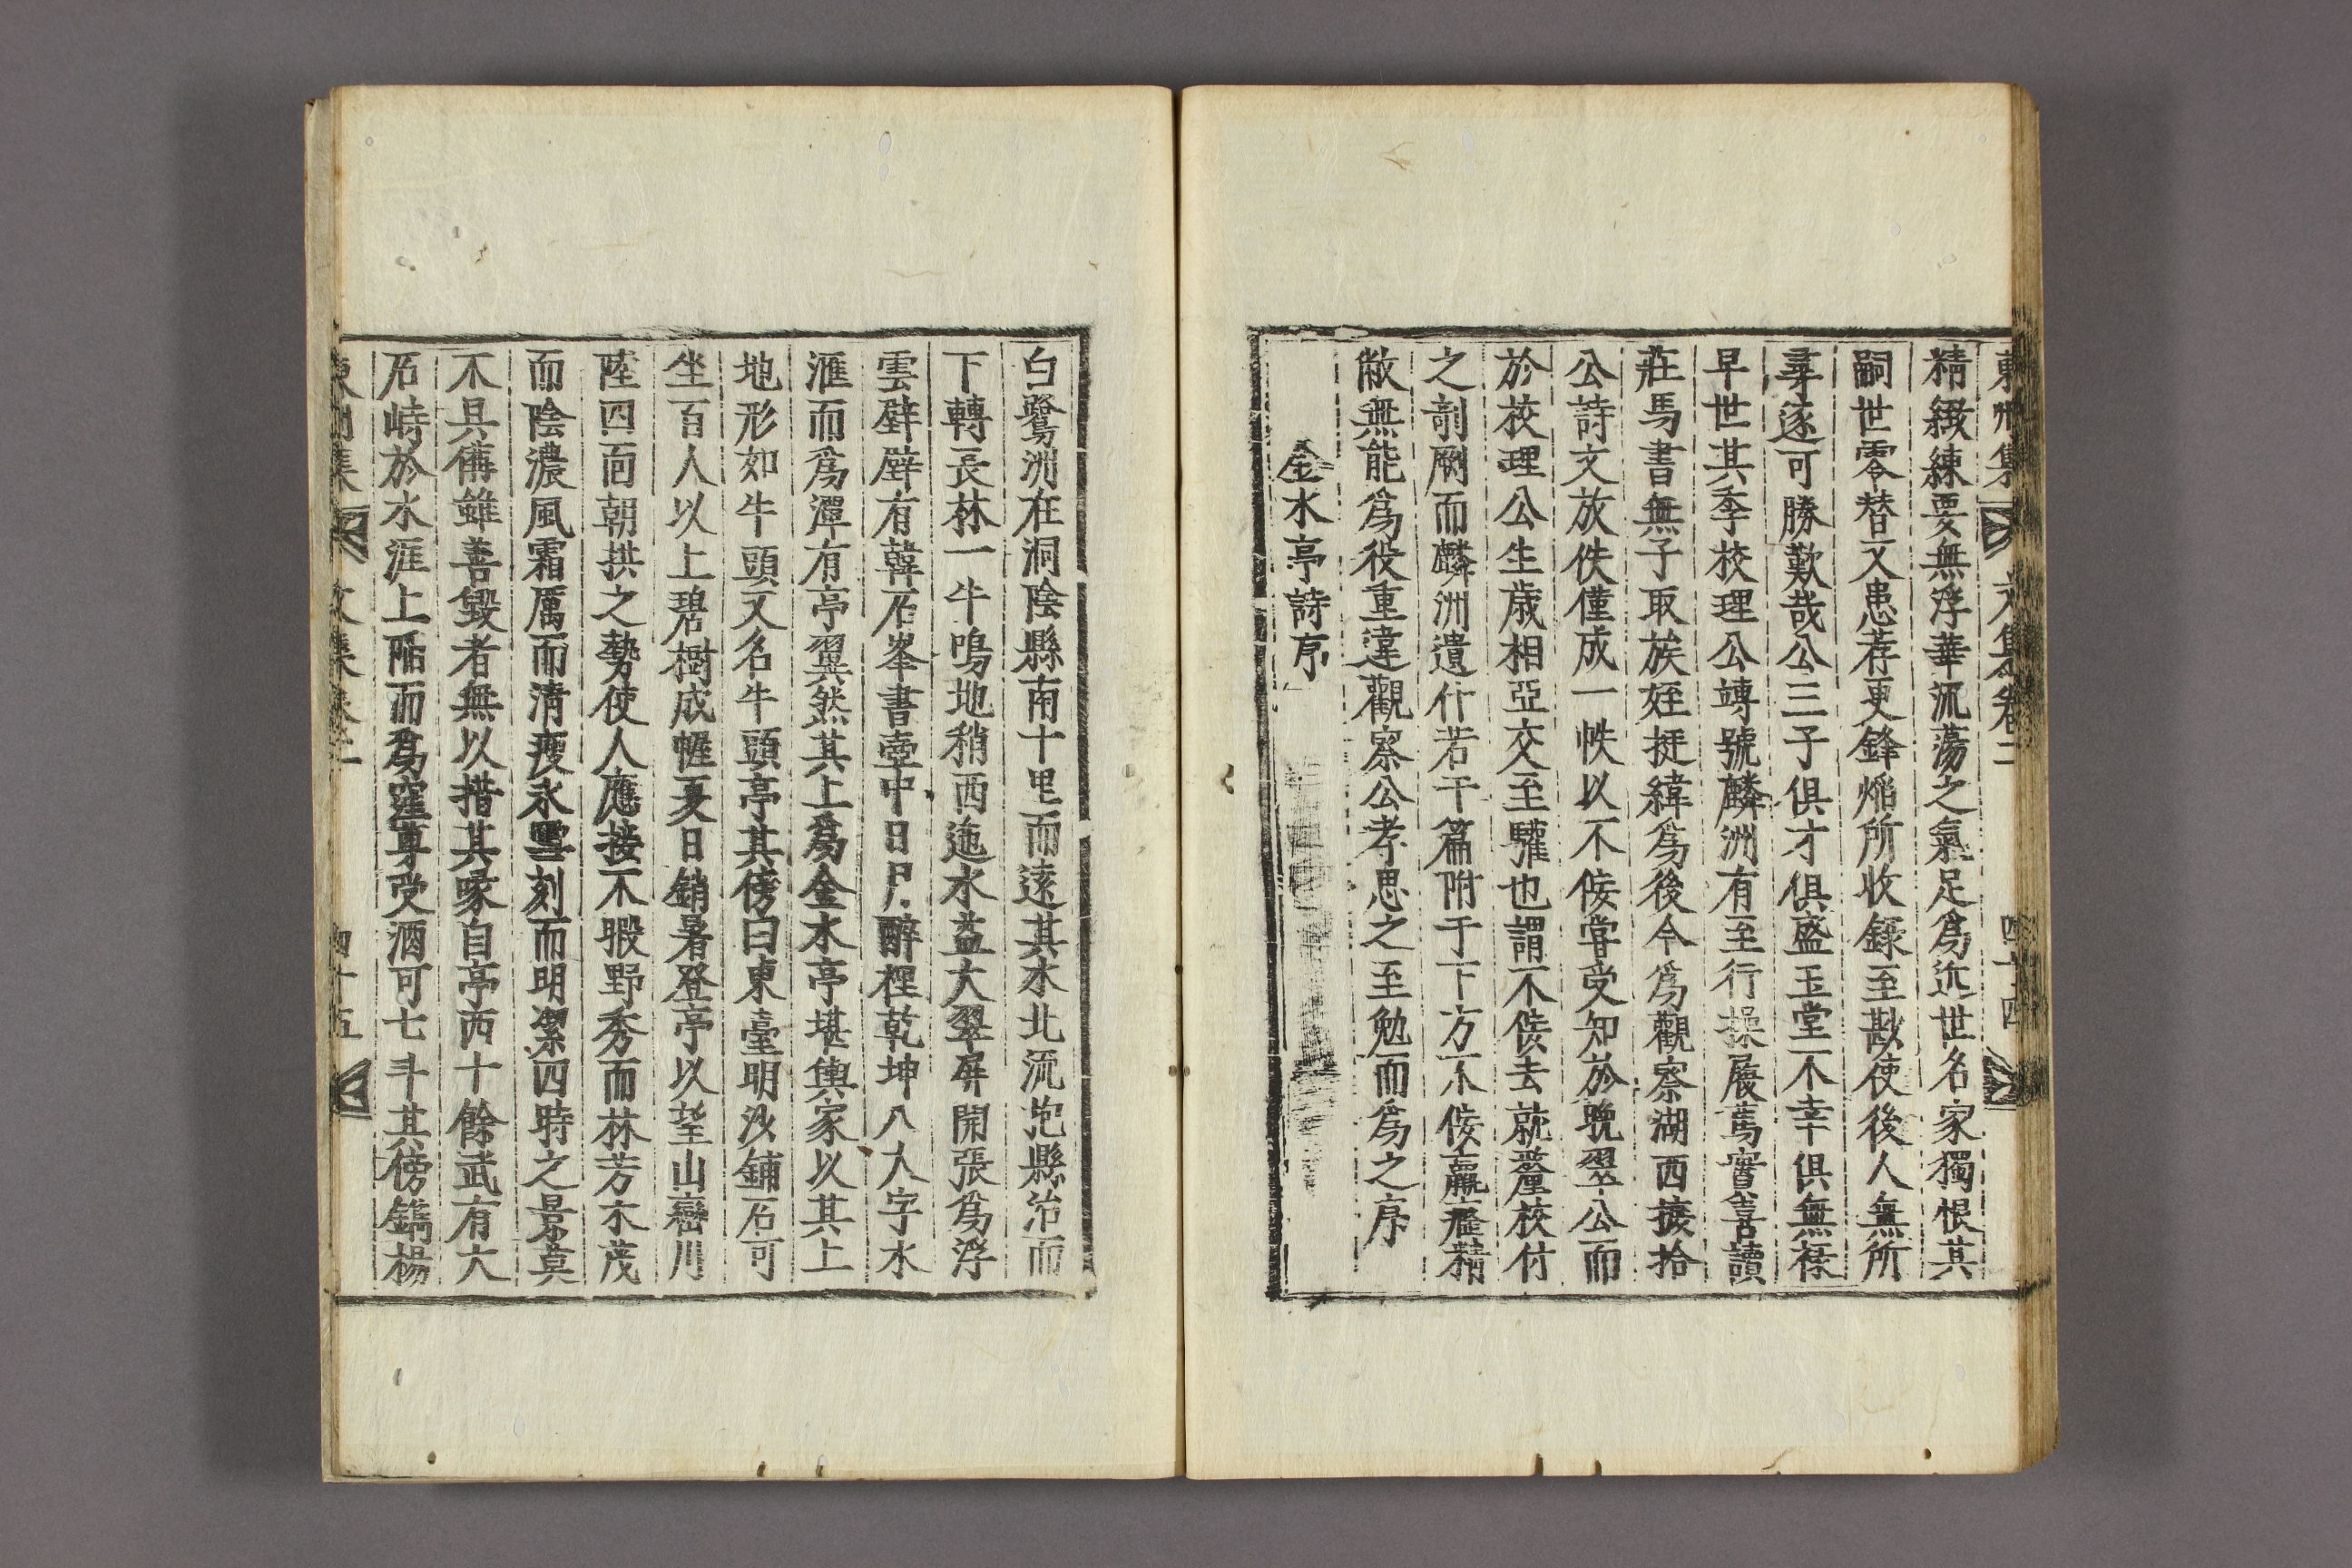 東州集 文集卷二 四十四
精緻練要無浮華流蕩之氣足爲近世名家獨恨其
嗣世零替又患荐更鋒熖所收錄至尠使後人無所
尋逐可勝歎哉公三子俱才俱盛玉堂不幸俱無祿
早世其季校理公諱號麟洲有至行操履篤實喜讀
莊馬書無子取族姪挺緯爲後今爲觀察湖西掇拾
公詩文放佚僅成一帙以不佞嘗受知於晚翠公而
於校理公生歲相亞交至驩也謂不佞去就釐校付
之剞劂而麟洲遺什若干篇附于下方不佞羸癃精
敝無能爲役重違觀察公孝思之至勉而爲之序
金水亭詩序
白鷺洲在洞陰縣南十里而遠其水北流抱縣治而
下轉長林一牛鳴地稍西迤水益大翠屛開張爲浮
雲壁壁有韓石峯書壺中日月醉裡乾坤八大字水
滙而爲潭有亭翼然其上爲金水亭堪輿家以其上
地形如牛頭又名牛頭亭其傍曰東臺明沙鋪石可
坐百人以上碧樹成幄夏日銷暑登亭以望山巒川
陸四面朝拱之勢使人應接不暇野秀而林芳木茂
而陰濃風霜厲而淸瘦氷雪刻而明潔四時之景莫
不具備雖善毀者無以措其喙自亭西十餘武有大
石峙於水涯上陷而爲窪尊受酒可七斗其傍鐫楊
東州集 文集卷二 四十五